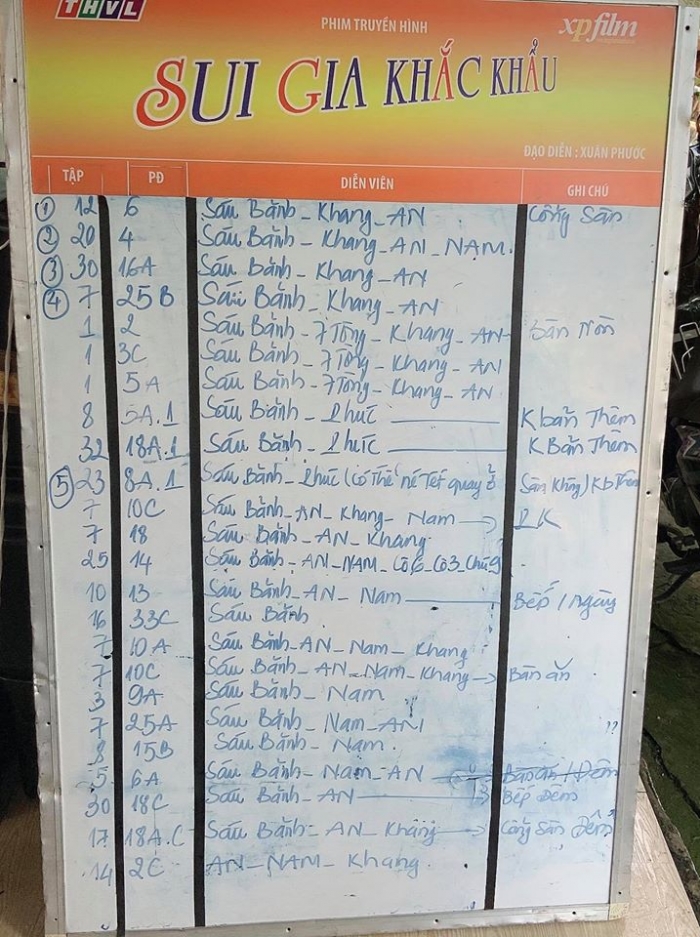 THVL
PHIM TRUYỀN HÌNH
xpfilm
SUI GIA KHẮC KHẨU
ĐẠO DIỄN : XUÂN PHƯỚC
TẬP PĐ DIỄN VIÊN GHI CHÚ
① 12 6 Sáu Bảnh - Khang - AN Cổng Sân
② 20 4 Sáu Bảnh - Khang - AN - NAM.
③ 30 16A Sáu Bảnh - Khang - AN
④ 7 25B Sáu Bảnh - Khang - AN
1 2 Sáu Bảnh - 7 Tòng - Khang - AN - Bàn
1 3C Sáu Bảnh - 7 Tòng - Khang - AN
1 5A Sáu Bảnh - 7 Tòng - Khang - AN
8 5A.1 Sáu Bảnh - Phúc K bắn Thêm
32 18A.1 Sáu Bảnh - Phúc K Bắn Thêm
⑤ 23 8A.1 Sáu Bảnh - Phúc (có Thể né Tét quay ở Sân ) Kb Thêm
7 10C Sáu Bảnh - AN - Khang - Nam → PK
7 18 Sáu Bảnh - AN - Khang
25 14 Sáu Bảnh - AN - NAM - Cô 6 - Cô 3 - Chú 9
10 13 Sáu Bảnh - AN - Nam Bếp / ngày
16 33C Sáu Bảnh
7 10A Sáu Bảnh - AN - Nam - Khang
7 10C Sáu Bảnh - AN - Nam - Khang → Bàn ăn
3 9A Sáu Bảnh - Nam
7 25A Sáu Bảnh - Nam - AN
8 15B Sáu Bảnh - Nam. ??
5 6A Sáu Bảnh - Nam - AN Bàn ăn / Đêm
30 18C Sáu Bảnh - AN Bếp Đêm
17 18A.C Sáu Bảnh - AN - Khang → Cổng Sân Đêm
14 2C AN - NAM - Khang.